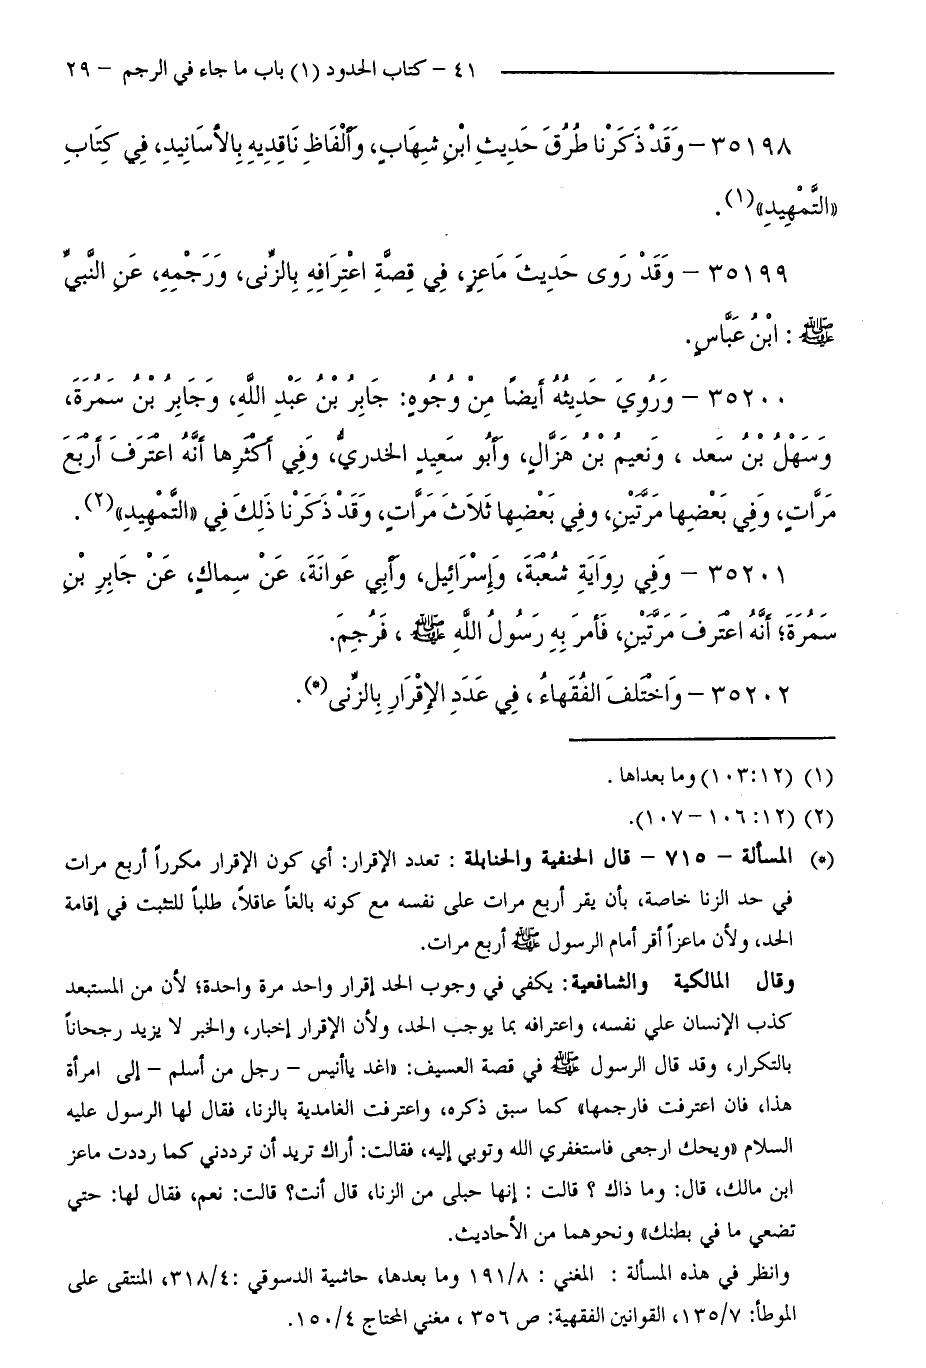 ٤١ – كتاب الحدود (١) باب ما جاء في الرجم – ٢٩
٣٥١٩٨ – وَقَدْ ذَكَرْنا طُرُقَ حَدِيثِ ابْنِ شِهَابٍ، وَأَلْفَاظِ نَاقِدِيهِ بِالأَسَانِيدِ، فِي كِتَابِ
«التَّمْهِيدِ»(١).
٣٥١٩٩ – وَقَدْ رَوى حَدِيثَ مَاعِزٍ، فِي قِصَّةِ اعْتِرَافِهِ بِالزِّنى، وَرَجْمِهِ، عَنِ النَّبيِّ
ﷺ : ابْنُ عَبَّاسٍ.
٣٥٢٠٠ – وَرُوِيَ حَدِيثُهُ أَيضاً مِنْ وُجُوهٍ: جَابِرُ بْنُ عَبْدِ اللَّهِ، وَجَابِرُ بْنُ سَمُرَةَ،
وَسَهْلُ بْنُ سَعد ، وَنَعيمُ بْنُ هَزَّالٍ، وَأَبُو سَعِيدٍ الخدريُّ، وَفِي أَكْثَرِها أَنَّهُ اعْتَرَفَ أَرْبَعَ
مَرَّاتٍ، وَفِي بَعْضِها مَرَّتَيْنِ، وفِي بَعْضِها ثَلاَثَ مَرَّاتٍ، وَقَدْ ذَكَرْنا ذَلِكَ فِي «التَّمْهِيدِ»(٢).
٣٥٢٠١ – وَفِي رِوَايَةِ شُعْبَةَ، وَإِسْرَائِيل، وَأَبِي عَوانَةَ، عَنْ سِماكٍ، عَنْ جَابِرِ بْنِ
سَمُرَةَ؛ أَنَّهُ اعْتَرفَ مَرَّتَيْنِ، فَأَمرَ بِهِ رَسُولُ اللَّهِ ﷺ ، فَرُجِمَ.
٣٥٢٠٢ – وَاخْتَلَفَ الفُقَهاءُ ، فِي عَدَدِ الإِقْرَارِ بِالزِّنى(*).
(١) (١٢:١٠٣) وما بعداها .
(٢) (١٢: ١٠٦ – ١٠٧).
(*) المسألة – ٧١٥ – قال الحنفية والحنابلة : تعدد الإقرار: أي كون الإقرار مكرراً أربع مرات
في حد الزنا خاصة، بأن يقر أربع مرات على نفسه مع كونه بالغاً عاقلاً، طلباً للتثبت في إقامة
الحد، ولأن ماعزاً أقر أمام الرسول ﷺ أربع مرات.
وقال المالكية والشافعية: يكفي في وجوب الحد إقرار واحد مرة واحدة؛ لأن من المستبعد
كذب الإنسان علي نفسه، واعترافه بما يوجب الحد، ولأن الإقرار إخبار، والخبر لا يزيد رجحاناً
بالتكرار، وقد قال الرسول ﷺ في قصة العسيف: «اغد ياأنيس – رجل من أسلم – إلى امرأة
هذا، فان اعترفت فارجمها» كما سبق ذكره، واعترفت الغامدية بالزنا، فقال لها الرسول عليه
السلام «ويحك ارجعى فاستغفري الله وتوبي إليه، فقالت: أراك تريد أن ترددني كما رددت ماعز
ابن مالك، قال: وما ذاك ؟ قالت : إنها حبلى من الزنا، قال أنت؟ قالت: نعم، فقال لها: حتي
تضعي ما في بطنك» ونحوهما من الأحاديث.
وانظر في هذه المسألة : المغني : ١٩١/٨ وما بعدها، حاشية الدسوقي :٣١٨/٤، المنتقى على
الموطأ: ١٣٥/٧، القوانين الفقهية: ص ٣٥٦ ، مغني المحتاج ١٥٠/٤.